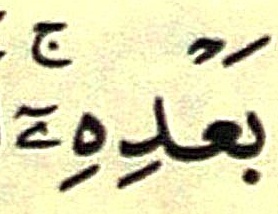 بَعْدِهِۦٓ ۚ